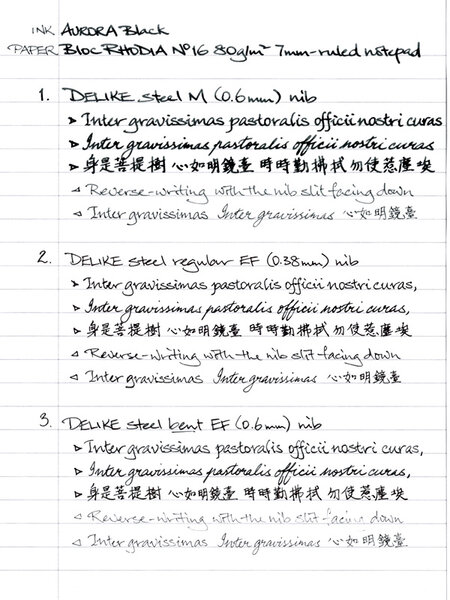 INK AURORA Black
PAPER Bloc RHODIA Nº16 80g/m² 7mm-ruled notepad
1. DELIKE steel M (0.6mm) nib
▷ Inter gravissimas pastoralis officii nostri curas
▷ Inter gravissimas pastoralis officii nostri curas
▷ 身是菩提樹 心如明鏡臺 時時勤拂拭 勿使惹塵埃
◁ Reverse-writing with the nib slit facing down
◁ Inter gravissimas Inter gravissimas 心如明鏡臺
2. DELIKE steel regular EF (0.38mm) nib
▷ Inter gravissimas pastoralis officii nostri curas,
▷ Inter gravissimas pastoralis officii nostri curas,
▷ 身是菩提樹 心如明鏡臺 時時勤拂拭 勿使惹塵埃
◁ Reverse-writing with the nib slit facing down
◁ Inter gravissimas Inter gravissimas 心如明鏡臺
3. DELIKE steel bent EF (0.6mm) nib
▷ Inter gravissimas pastoralis officii nostri curas,
▷ Inter gravissimas pastoralis officii nostri curas,
▷ 身是菩提樹 心如明鏡臺 時時勤拂拭 勿使惹塵埃
◁ Reverse-writing with the nib slit facing down
◁ Inter gravissimas Inter gravissimas 心如明鏡臺